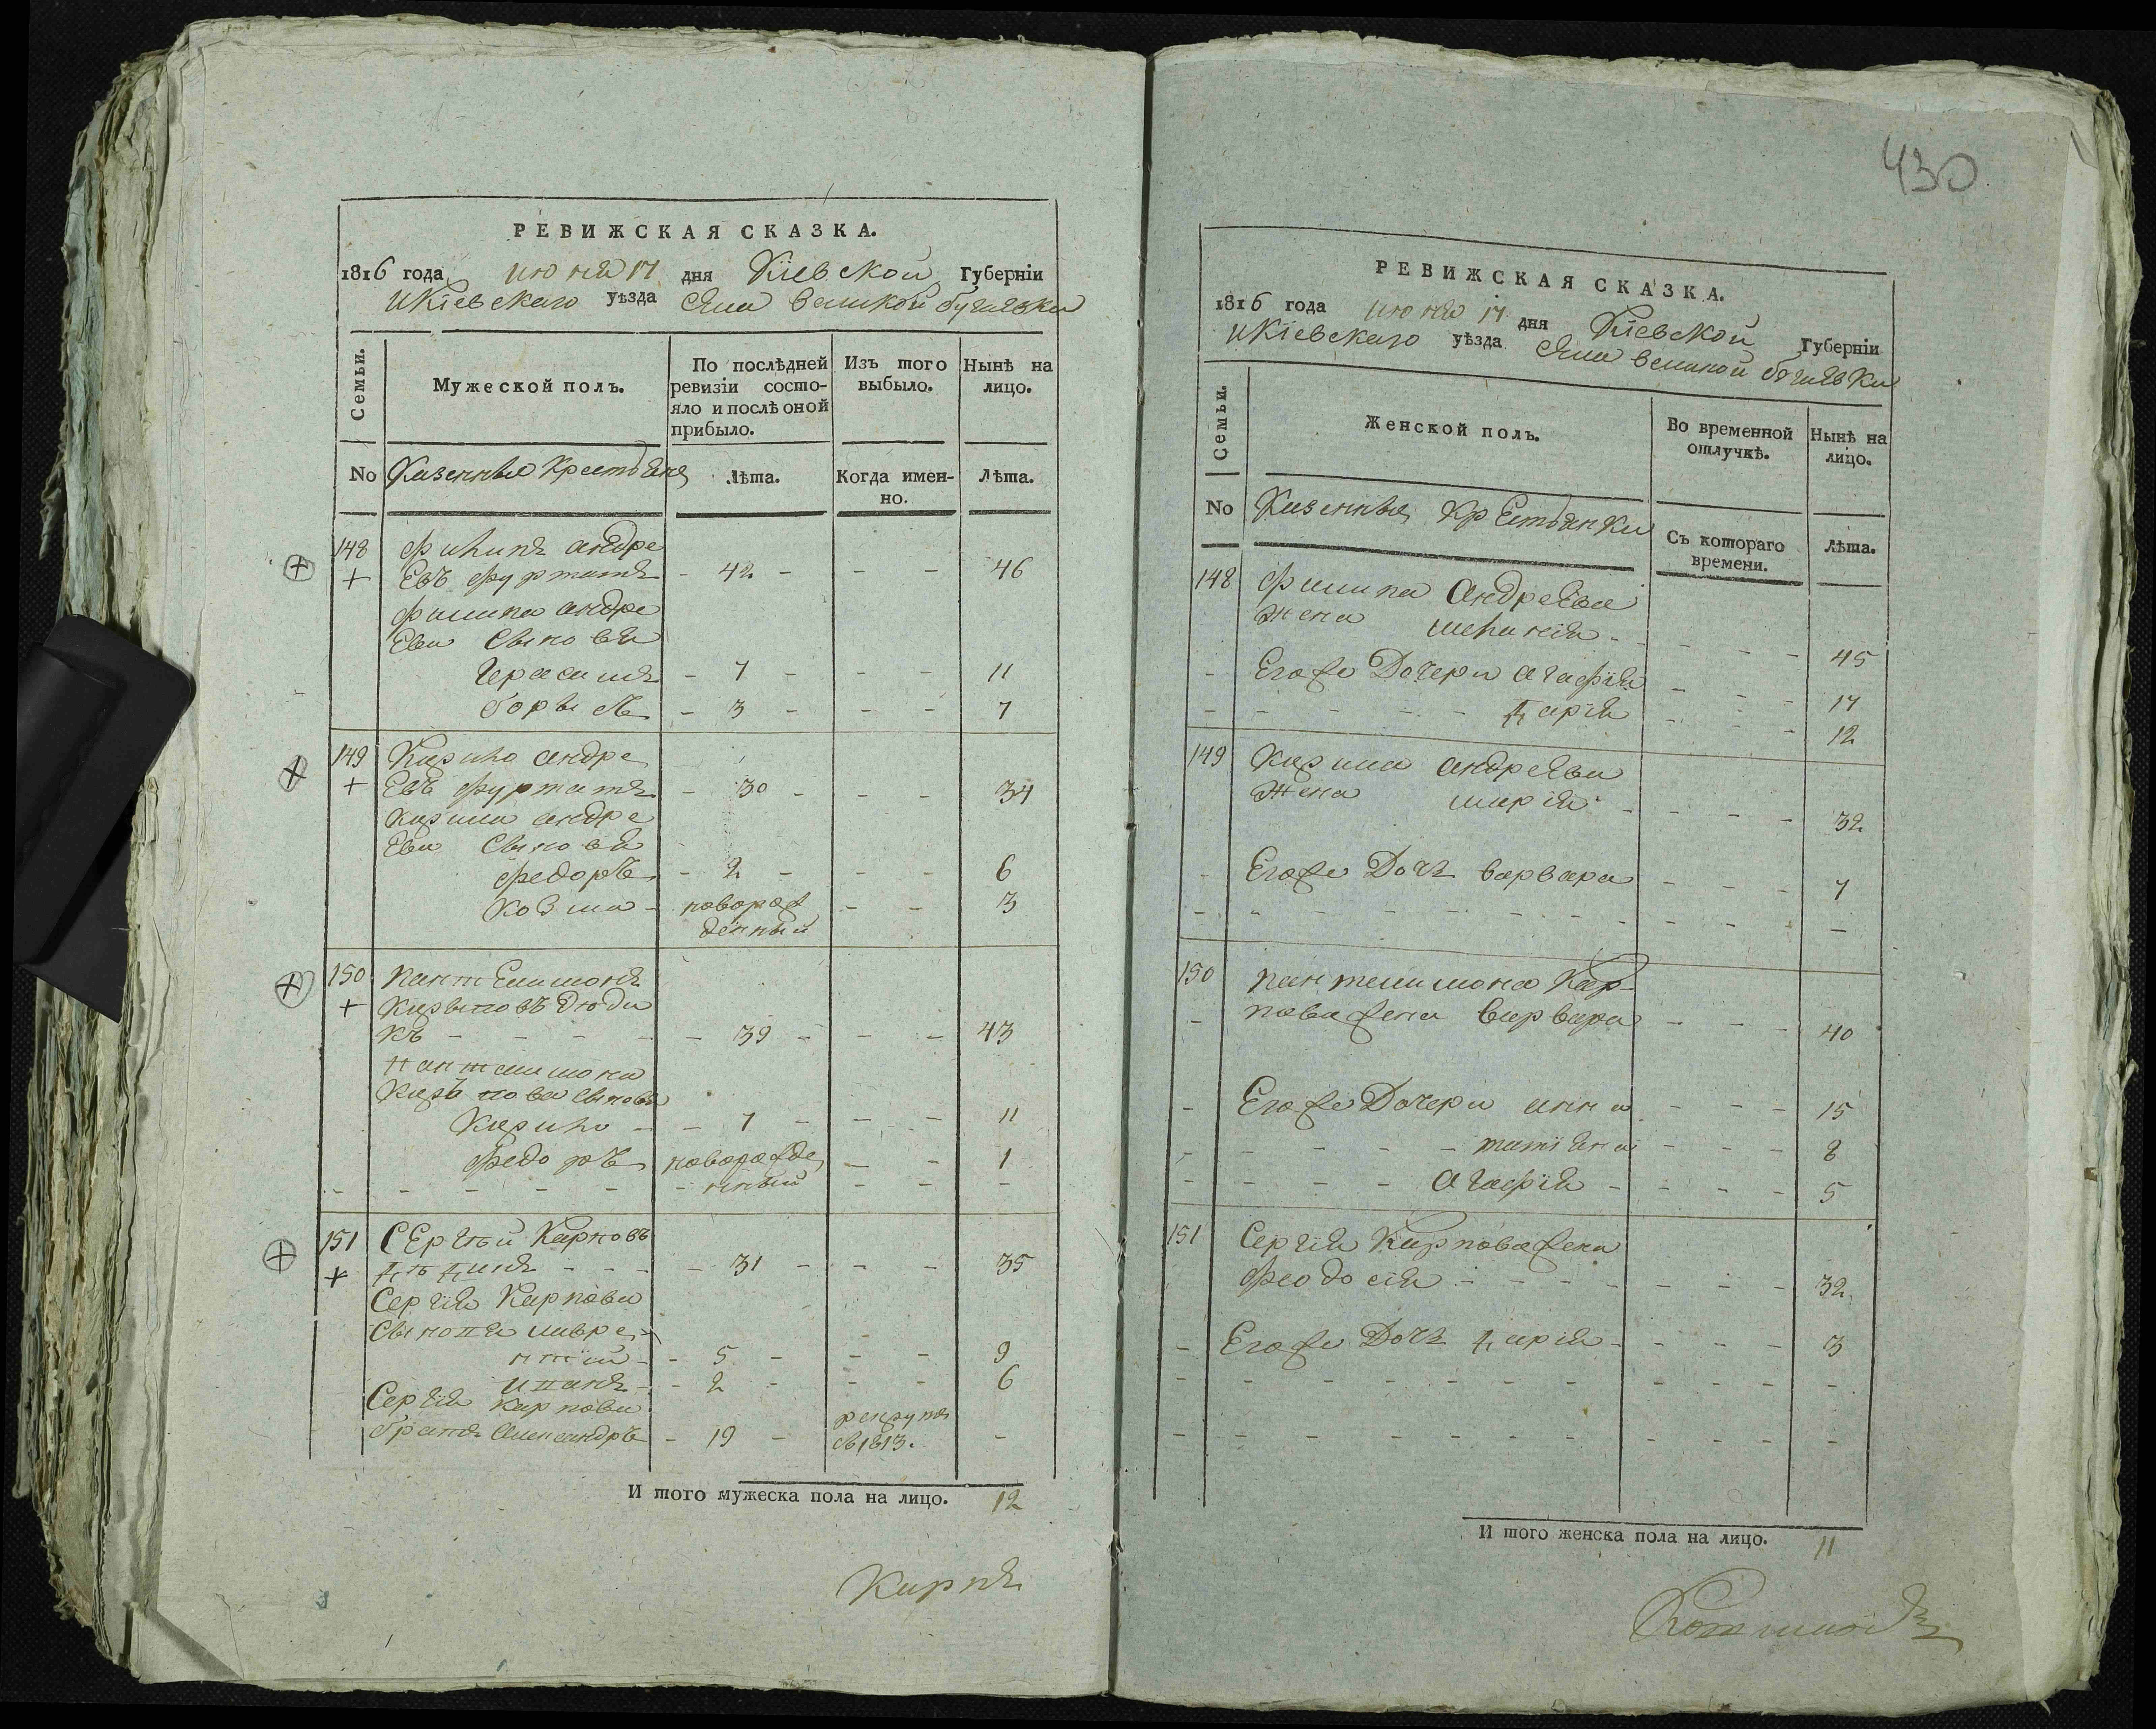 430
РЕВИЖСКАЯ СКАЗКА.
1816 года июня 17 дня Кіевской Губерніи
и Кіевскаго уѣзда села великой бугаевки
Семьи.
Мужеской полъ.
По послѣдней ревизіи состо-
яло и послѣ оной
прибыло.
Изъ того
выбыло.
Нынѣ на
лицо.
No Казенныя крестьяня
Лѣта.
Когда имен-
но.
Лѣта.
148 филипъ андре
+ евъ фурматъ - 42 - - - 46
филипа андре
ева сыновя
Герасимъ - 7 - - - 11
борысъ - 3 - - - 7
149 Кирило андре
+ евъ фурматъ - 30 - - - 34
кирила андре
ева сыновя
федоръ - 2 - - - 6
Козма - новорож - - 3
денный
150 пантелимонъ
+ карповъ дюди
къ - - - - 39 - - - 43
пантелимона
карпова сынова
Кирило - - 7 - - - 11
федоръ новорожде - - 1
- - - - - - нный - - -
151 Сергѣй Карповъ
+ дюдикъ - - - - 31 - - - 35
Сергія Карпова
сыновя лавре
нтій - - 5 - - - 9
иванъ - - 2 - - - 6
Сергія карпова
братъ александръ - 19 - рекрутъ
въ 1813. -
И того мужеска пола на лицо. 12
Карпъ
РЕВИЖСКАЯ СКАЗКА.
1816 года июня 17 дня Кіевской Губерніи
и Кіевскаго уѣзда села великой бугаевки
Семьи.
Женской полъ.
Во временной
отлучкѣ.
Нынѣ на
лицо.
No Казенныя крестьянки
Съ котораго
времени.
Лѣта.
148 филипа андреева
жена меланія - - - - 45
- Егоже дочери агафія - - - 17
- - - - - - дарія - - - 12
149 кирила андреева
жена марія - - - - 32
- Егоже дочь варвара - - - 7
- - - - - - - - - - - - -
150 пантелимона кар-
- пова жена варвара - - - 40
- Егоже дочери анна - - - 15
- - - - - - татіяна - - - 8
- - - - - агафія - - - - 5
151 Сергія Карпова жена
феодосія - - - - - - - - 32
- Егоже дочь дарія - - - - 3
- - - - - - - - - - - - -
- - - - - - - - - - - - -
И того женска пола на лицо. 11